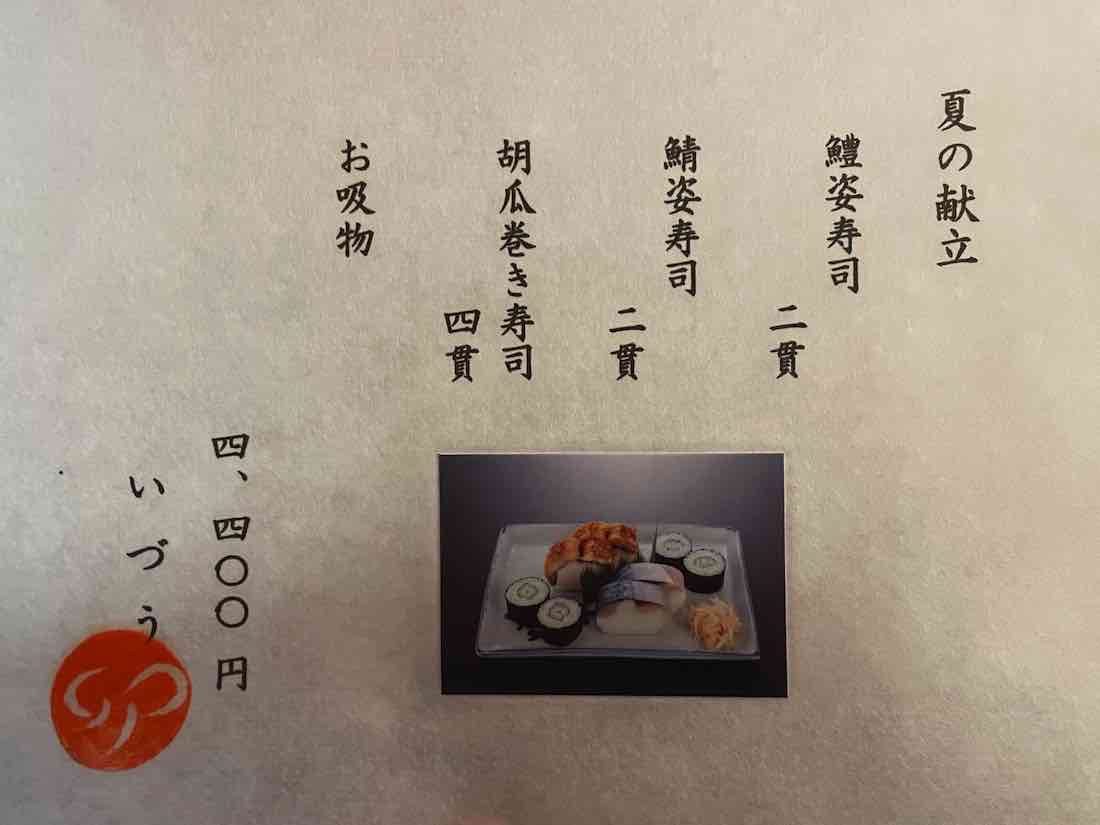 夏の献立
鱧姿寿司
二貫
鯖姿寿司
二貫
胡瓜巻き寿司
四貫
お吸物
四、四〇〇円
いづう